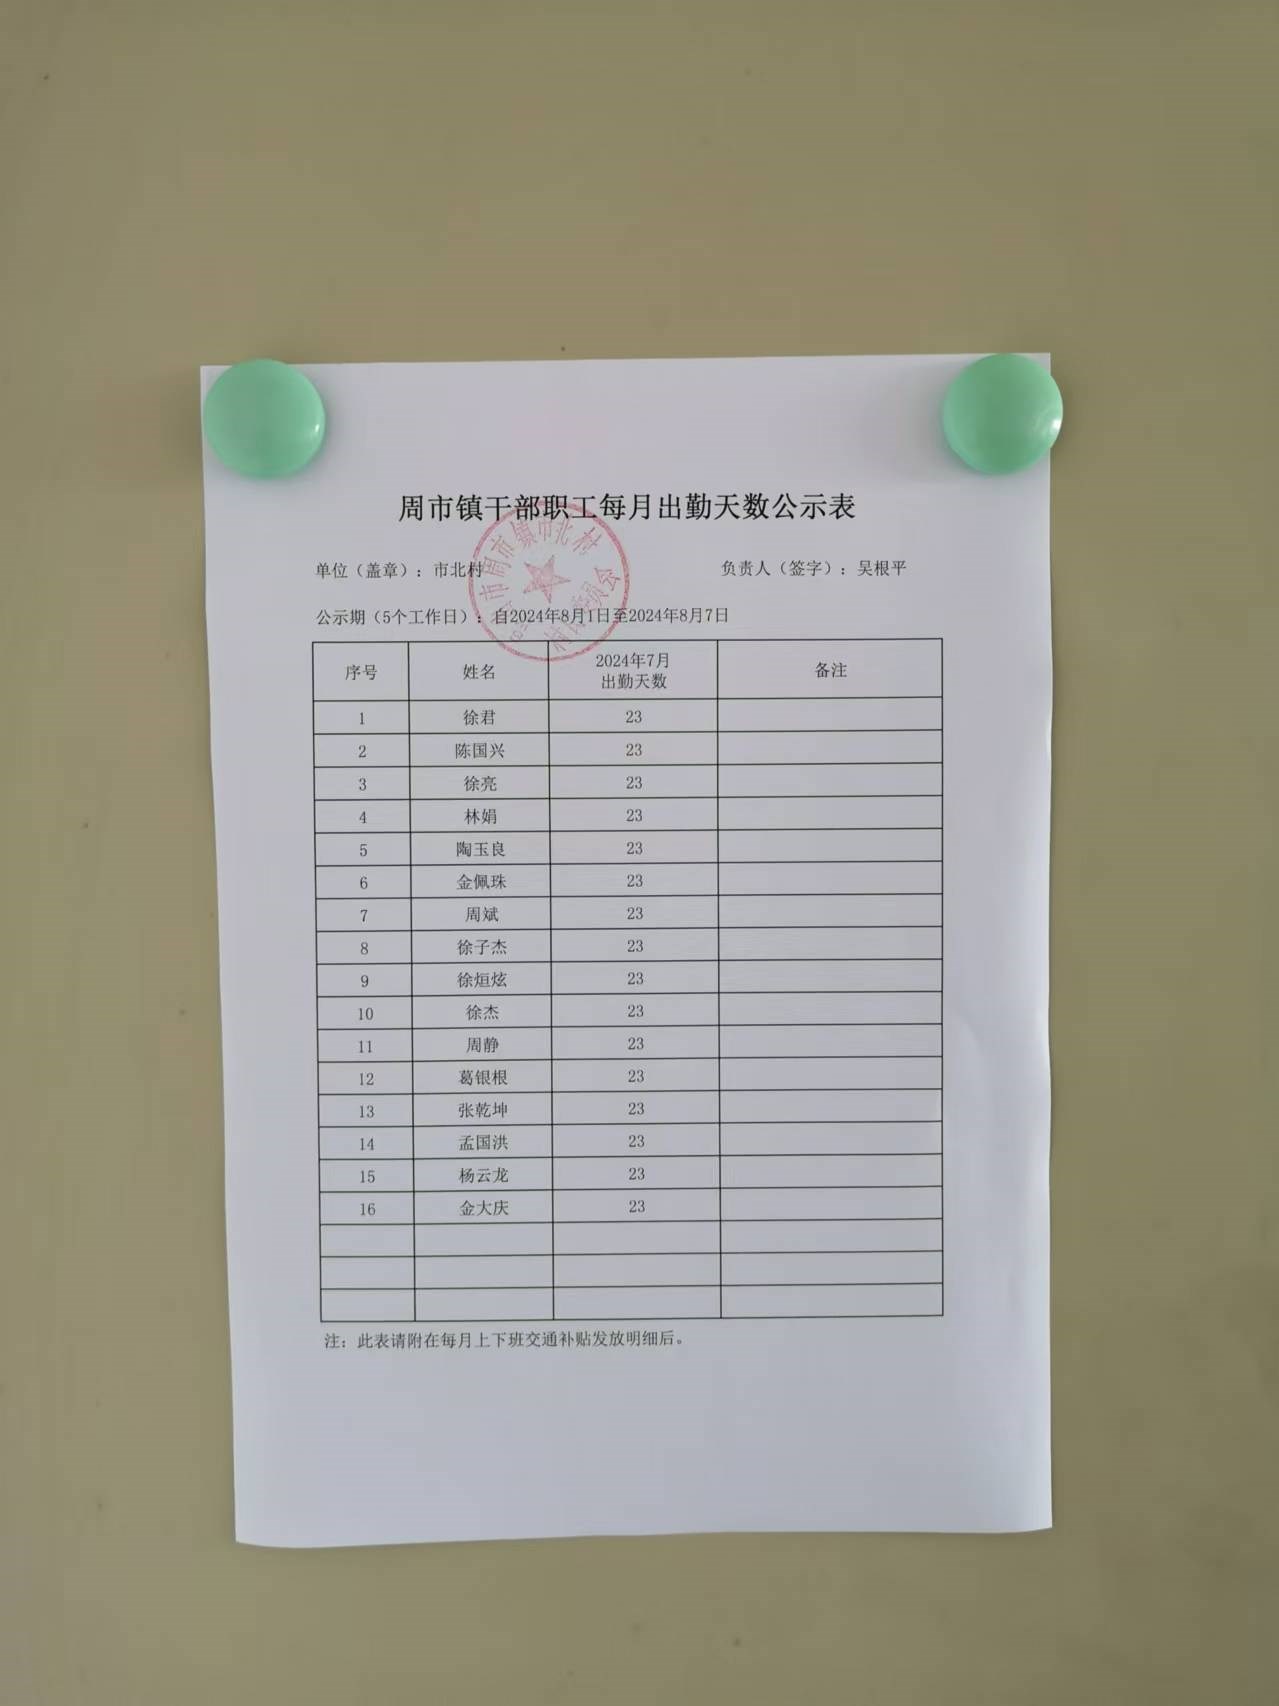 周市镇干部职工每月出勤天数公示表
单位（盖章）：市北村 负责人（签字）：吴根平
公示期（5个工作日）：自2024年8月1日至2024年8月7日
序号 姓名 2024年7月 备注
出勤天数
1 徐君 23
2 陈国兴 23
3 徐亮 23
4 林娟 23
5 陶玉良 23
6 金佩珠 23
7 周斌 23
8 徐子杰 23
9 徐烜炫 23
10 徐杰 23
11 周静 23
12 葛银根 23
13 张乾坤 23
14 孟国洪 23
15 杨云龙 23
16 金大庆 23
注：此表请附在每月上下班交通补贴发放明细后。
市周市镇市北村
村民委员会